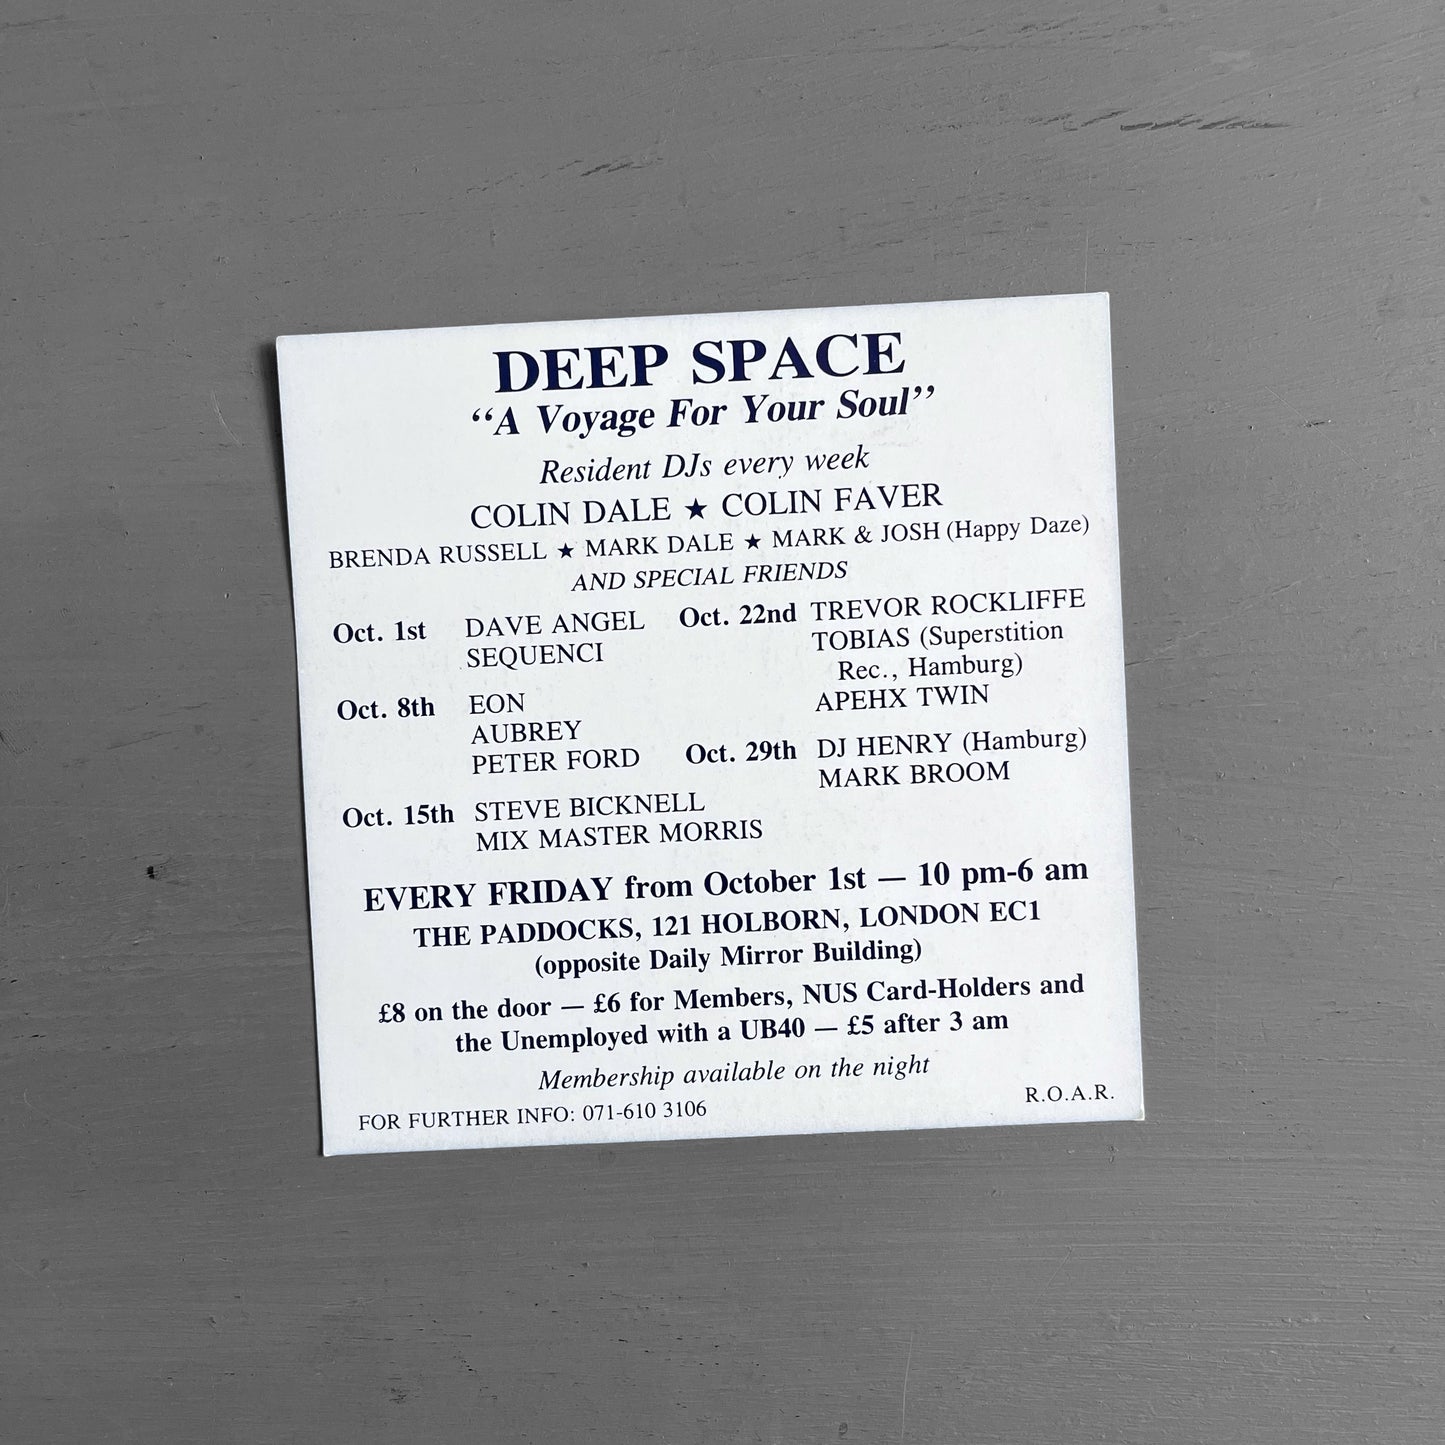 DEEP SPACE
“A Voyage For Your Soul”
Resident DJs every week
COLIN DALE ★ COLIN FAVER
BRENDA RUSSELL ★ MARK DALE ★ MARK & JOSH (Happy Daze)
AND SPECIAL FRIENDS
Oct. 1st DAVE ANGEL
SEQUENCI
Oct. 8th EON
AUBREY
PETER FORD
Oct. 15th STEVE BICKNELL
MIX MASTER MORRIS
Oct. 22nd TREVOR ROCKLIFFE
TOBIAS (Superstition
Rec., Hamburg)
APEHX TWIN
Oct. 29th DJ HENRY (Hamburg)
MARK BROOM
EVERY FRIDAY from October 1st — 10 pm-6 am
THE PADDOCKS, 121 HOLBORN, LONDON EC1
(opposite Daily Mirror Building)
£8 on the door — £6 for Members, NUS Card-Holders and
the Unemployed with a UB40 — £5 after 3 am
Membership available on the night
FOR FURTHER INFO: 071-610 3106
R.O.A.R.